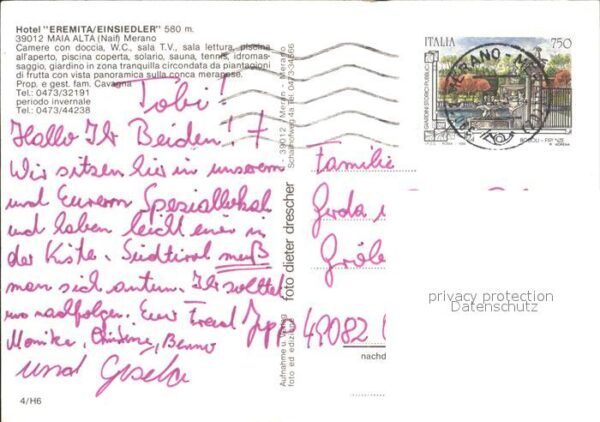 Hotel "EREMITA/EINSIEDLER" 580 m.
39012 MAIA ALTA (Naif) Merano
Camere con doccia, W.C., sala T.V., sala lettura, piscina
all'aperto, piscina coperta, solario, sauna, tennis, idromas-
saggio, giardino in zona tranquilla circondata da piantagioni
di frutta con vista panoramica sulla conca meranese.
Prop. e gest. fam. Cavagna
Tel.: 0473/32191
periodo invernale
Tel.: 0473/44238
Tobi!
Hallo Ihr Beiden!
Wir sitzen hier in unserem
und Eurem Speziallokal
und haben leicht einen in
der Kiste. Südtirol muß
man sich antun. Ihr solltet
uns nachfolgen. Euer Freund Jupp
Monika, Christine, Benno
und Gisela
4/H6
foto dieter drescher
Aufnahme u. Verlag
foto ed edizione
39012 Meran - Merano
Schafferweg 4a Tel. 0473-34566
ITALIA 750
GIARDINI STORICI PUBBLICI
BOBOLI - FIRENZE
MERANO
Familie
Gerda
49082
nachd
privacy protection
Datenschutz